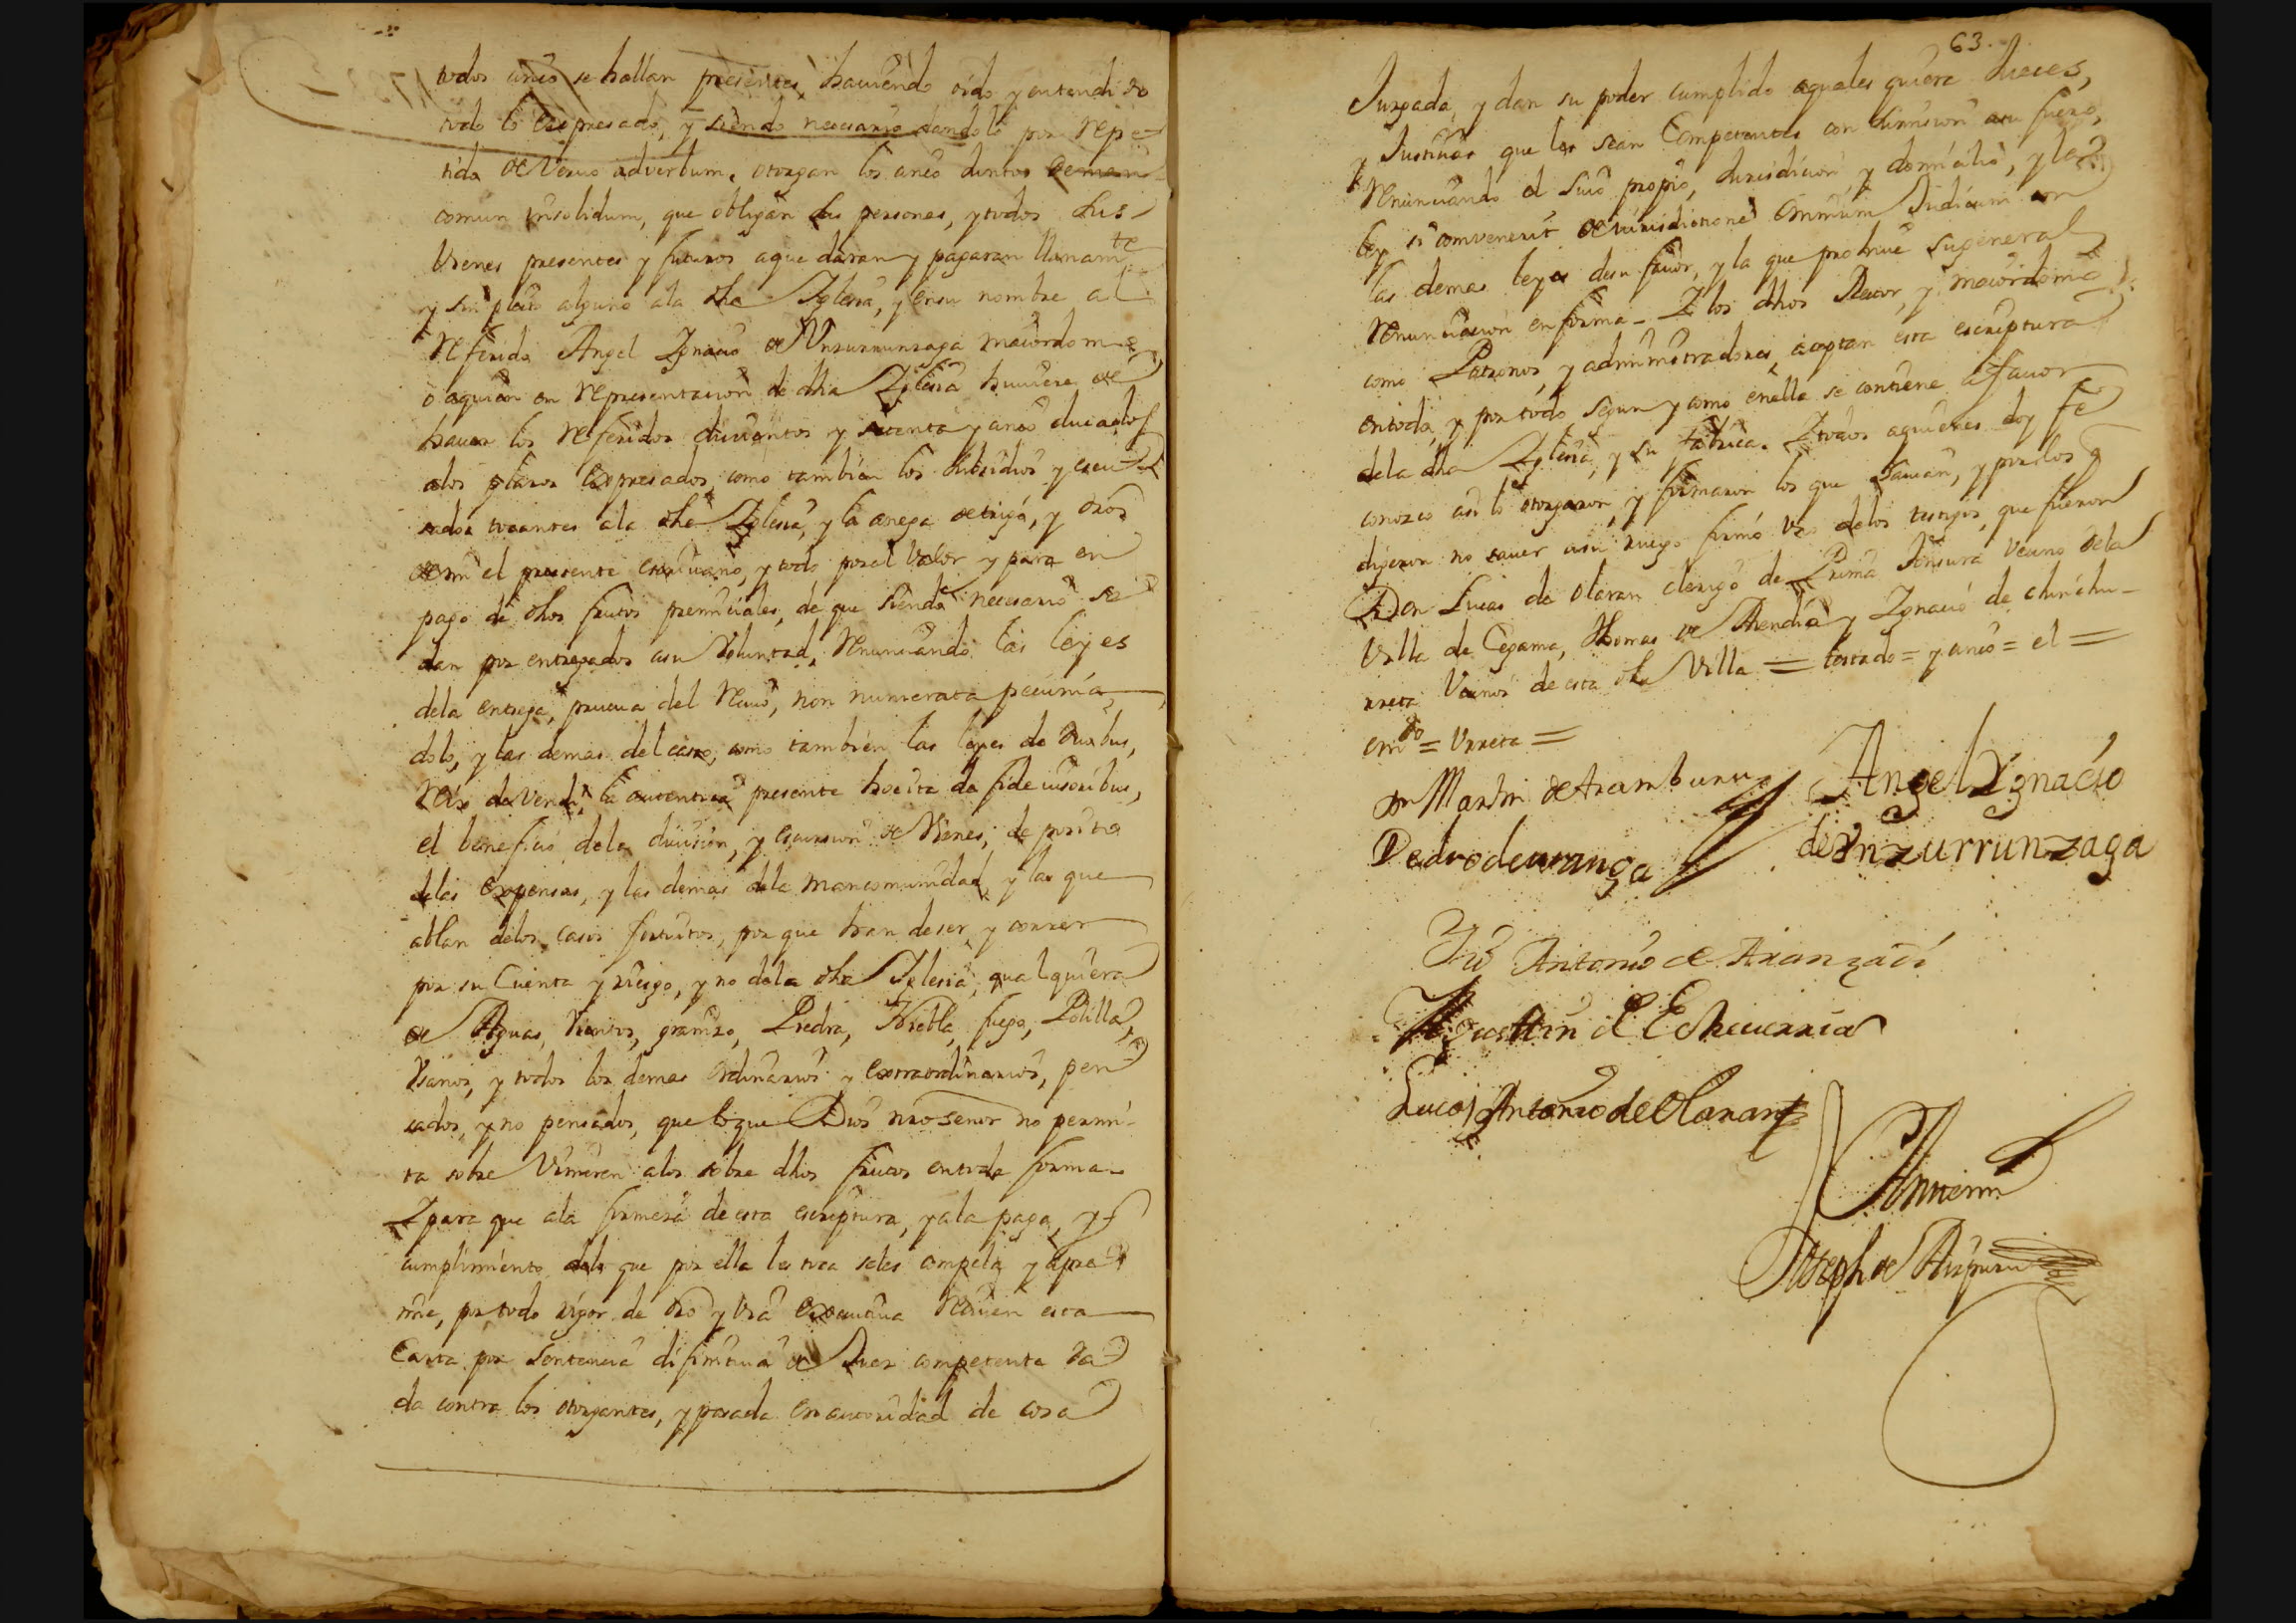 todos cinco se hallan presentes, haviendo oido y entendido
todo lo expresado, y siendo necesario dandolo por repe-
tido de Veruo adverbum, otorgan los cinco Juntos deman
comun insolidum, que obligan sus personas, y todos sus
Vienes presentes y futuros a que daran y pagaran llanamte
y sin pleito alguno ala dha Iglesia, y en su nombre al
referido Angel Ignacio de Unzurrunzaga maiordomo,
ò aquien en representacion de dha Iglesia huuiere de
hauer los referidos ducientos y setenta y cinco ducados
alos plazos expresados, como tambien los subsidios y escu-
sados tocantes ala dha Iglesia, y la anega de trigo, y dros
de mi el presente escriuano, y todo por el Valor y para en
pago de dhos frutos primiciales, de que siendo necesario se
dan por entregados a su Voluntad, renunciando las leyes
dela entrega, prueua del reciuo, non numerata pecunia,
dolo, y las demas del caso, como tambien las leyes de duobus,
reis de Vendi, la autentica presente hoc ita de fide iusoribus,
el beneficio dela diuision, y escursion de Vienes, de posito
delas expensas, y las demas dela mancomunidad, y las que
ablan delos casos fortuitos, por que han de ser, y correr
por su Cuenta y riesgo, y no dela dha Iglesia, qualquiera
de Aguas, Vientos, granizo, Piedra, Niebla, fuego, Polilla,
Vsanos, y todos los demas ordinarios y extraordinarios, pen
sados, y no pensados, que lo que Dios nro señor no permi-
ta sobre Vinieren alos sobre dhos frutos en toda forma.
Y para que ala firmeza de esta escriptura, y ala paga, y
cumplimiento delo que por ella les toca seles compela y apre
mie, por todo rigor de dro y Via executiua reciuen esta
Carta por Sentencia difinitiua de Juez competente da
da contra los otorgantes, y pasada en autoridad de cosa
63.
Juzgada, y dan su poder cumplido aquales quiera Jueces,
y Justicias que les sean Competentes con sumision a su fuero,
renunciando el suio propio, Jurisdicion y domicilio, y la
ley si convenerit de iurisdictione omnium Judicum con
las demas leyes de su fauor, y la que prohiue su general
renunciacion en forma. Y los dhos Rector, y maiordomo
como Patronos, y administradores, aceptan esta escriptura
en todo, y por todo segun y como en ella se contiene a fauor
dela dha Iglesia, y su fabrica. Y todos aquienes doy fe
conozco asi lo otorgaron, y firmaron los que sauian, y por los q
dijeron no sauer a su ruego firmó Uno delos testigos, que fueron
Don Lucas de Olaran clerigo de Prima Tonsura Vecino dela
Villa de Cegama, Thomas de Mendia y Ignacio de chinchu-
rreta Vecinos de esta dha Villa = testado = y cinco = el =
emdo = Urreta =
Dn Martin de Aramburu
Angel Ygnacio
de Vnzurrunzaga
Pedro de uranga
Antonio de Aranzadi
Agusttin de Echeuerria
Lucas Antonio de Olaran
Antemi
Joseph de Aizpuru